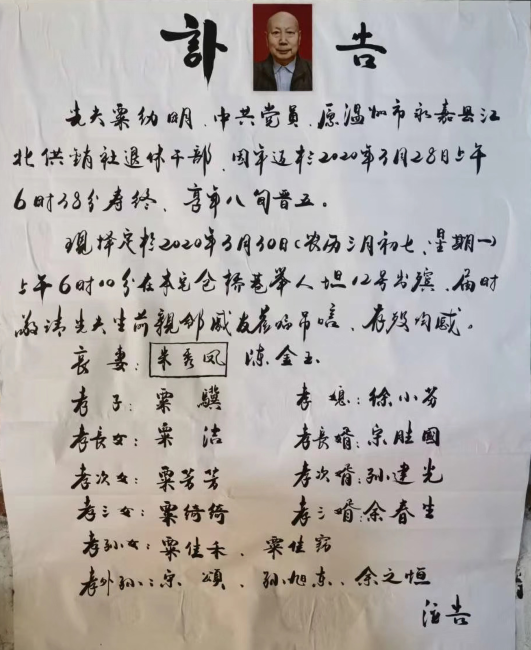 訃告
先夫粟幼明、中共党员、原温州市永嘉县江
北供销社退休干部、因年迈于2020年3月28日上午
6时38分寿终、享年八旬晋五。
现择定於2020年3月30日(农历三月初七、星期一)
上午6时00分在本宅仓桥巷举人坦12号出殡,届时
敬请先夫生前親邻戚友莅临吊唁、存殁均感。
哀妻:朱秀凤 陈金玉
孝子:粟骥 孝媳:徐小芬
孝长女:粟洁 孝長婿:宗胜國
孝次女:粟芳芳 孝次婿:孙建光
孝三女:粟绮绮 孝三婿:余春生
孝孙女:粟佳禾、粟佳窈
孝外孙:宗頌、孙旭东、余之恒
泣告